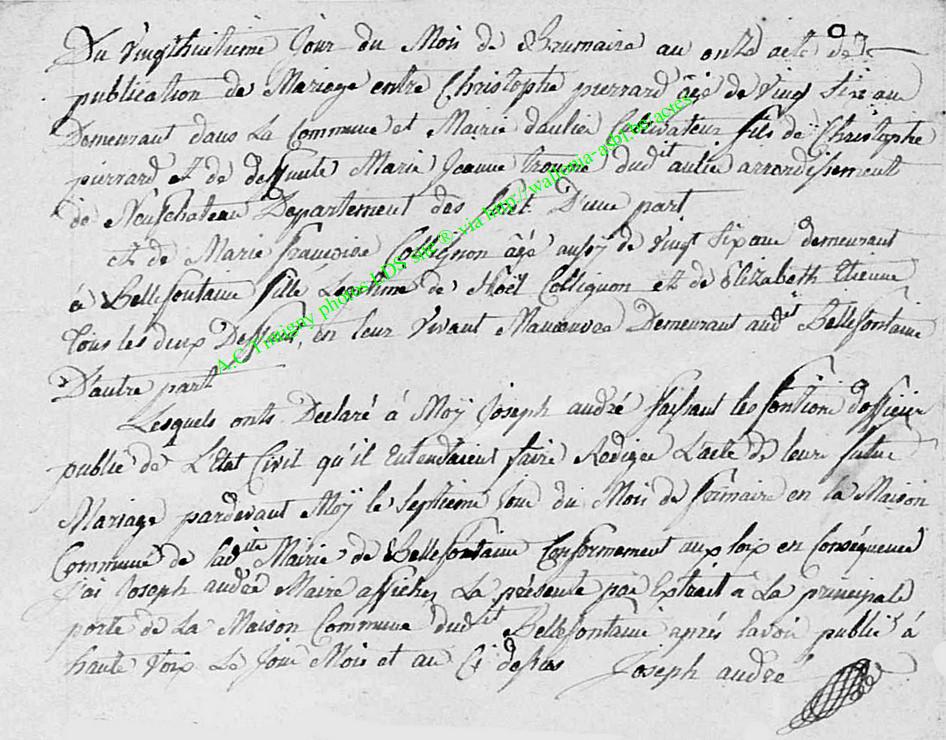 Du vingthuitieme Jour du Mois de Brumaire an onze acte de
publication de Mariage entre Christophe pierrard âgé de vingt six ans
Demeurant dans la Commune et Mairie daulier Cultivateur fils de Christophe
pierrard et de deffunte Marie Jeanne dudit aulier arrondissement
de Neufchateau Departement des foret D'une part
et de Marie françoise Collignon âgé aussÿ de vingt six ans demeurant
à Bellefontaine fille Legitime de Noël Collignon et de Elizabeth Etienne
Tous les deux Deffunt, en leur vivant Manœuvre Demeurant audit Bellefontaine
D'autre part
Lesquels onts Declaré à Moÿ Joseph andré faissant les fontion dofficier
public de L'Etat Civil qu'il Entendaient faire Rediger L'acte de leur futur
Mariage pardevant Moÿ le Septieme Jour du Mois de frimaire en la Maison
Commune de ladite Mairie de Bellefontaine Conformement aux loix en Conséquence
J'ai Joseph andré Maire affichez La présente par Extrait a La principale
porte de La Maison Commune dudit Bellefontaine après lavoir publié à
haute voix Le Jour Mois et an Ci dessus Joseph andré
A.C. Tintigny photos LDS site ® via http://wallonia-asbl.be/actes